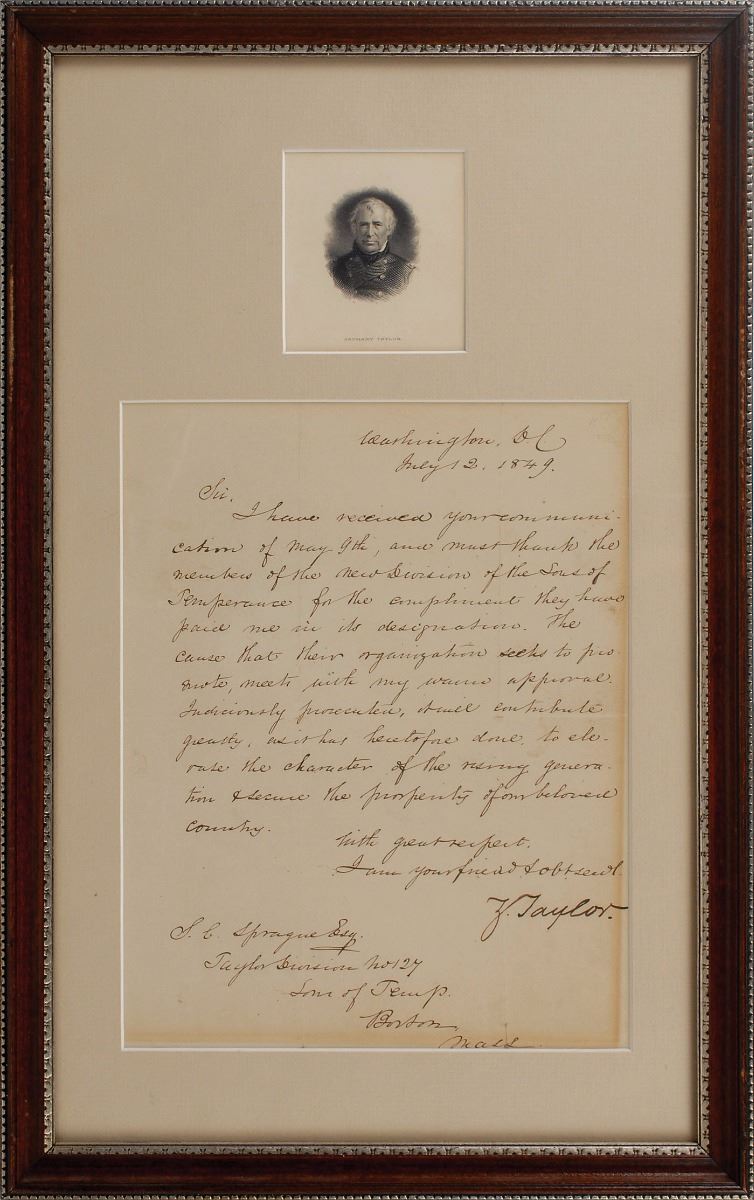 ZACHARY TAYLOR
Washington, D. C
July 12. 1849.
Sir,
I have received your communi-
cation of May 9th, and must thank the
members of the new Division of the Sons of
Temperance for the compliment they have
paid me in its designation. The
cause that their organization seeks to pro-
mote, meets with my warm approval.
Judiciously prosecuted, it will contribute
greatly, as it has heretofore done, to ele-
vate the character of the rising genera-
tion & secure the prosperity of our beloved
country.
With great respect.
I am your friend & obt servt.
Z. Taylor.
S. C. Sprague Esq.
Taylor Division No 127
Sons of Temp.
Boston
Mass